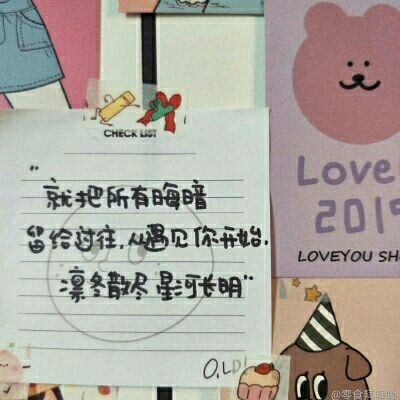 CHECK LIST
“就把所有晦暗
留给过往,从遇见你开始,
凛冬散尽星河长明”
O.LD!
Love
2019
LOVEYOU SH